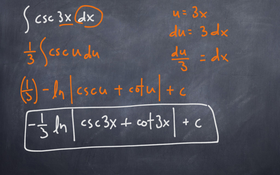 ∫ csc 3x dx
u = 3x
du = 3 dx
1/3 ∫ csc u du
du/3 = dx
(1/3) - ln | csc u + cot u | + c
-1/3 ln | csc 3x + cot 3x | + c